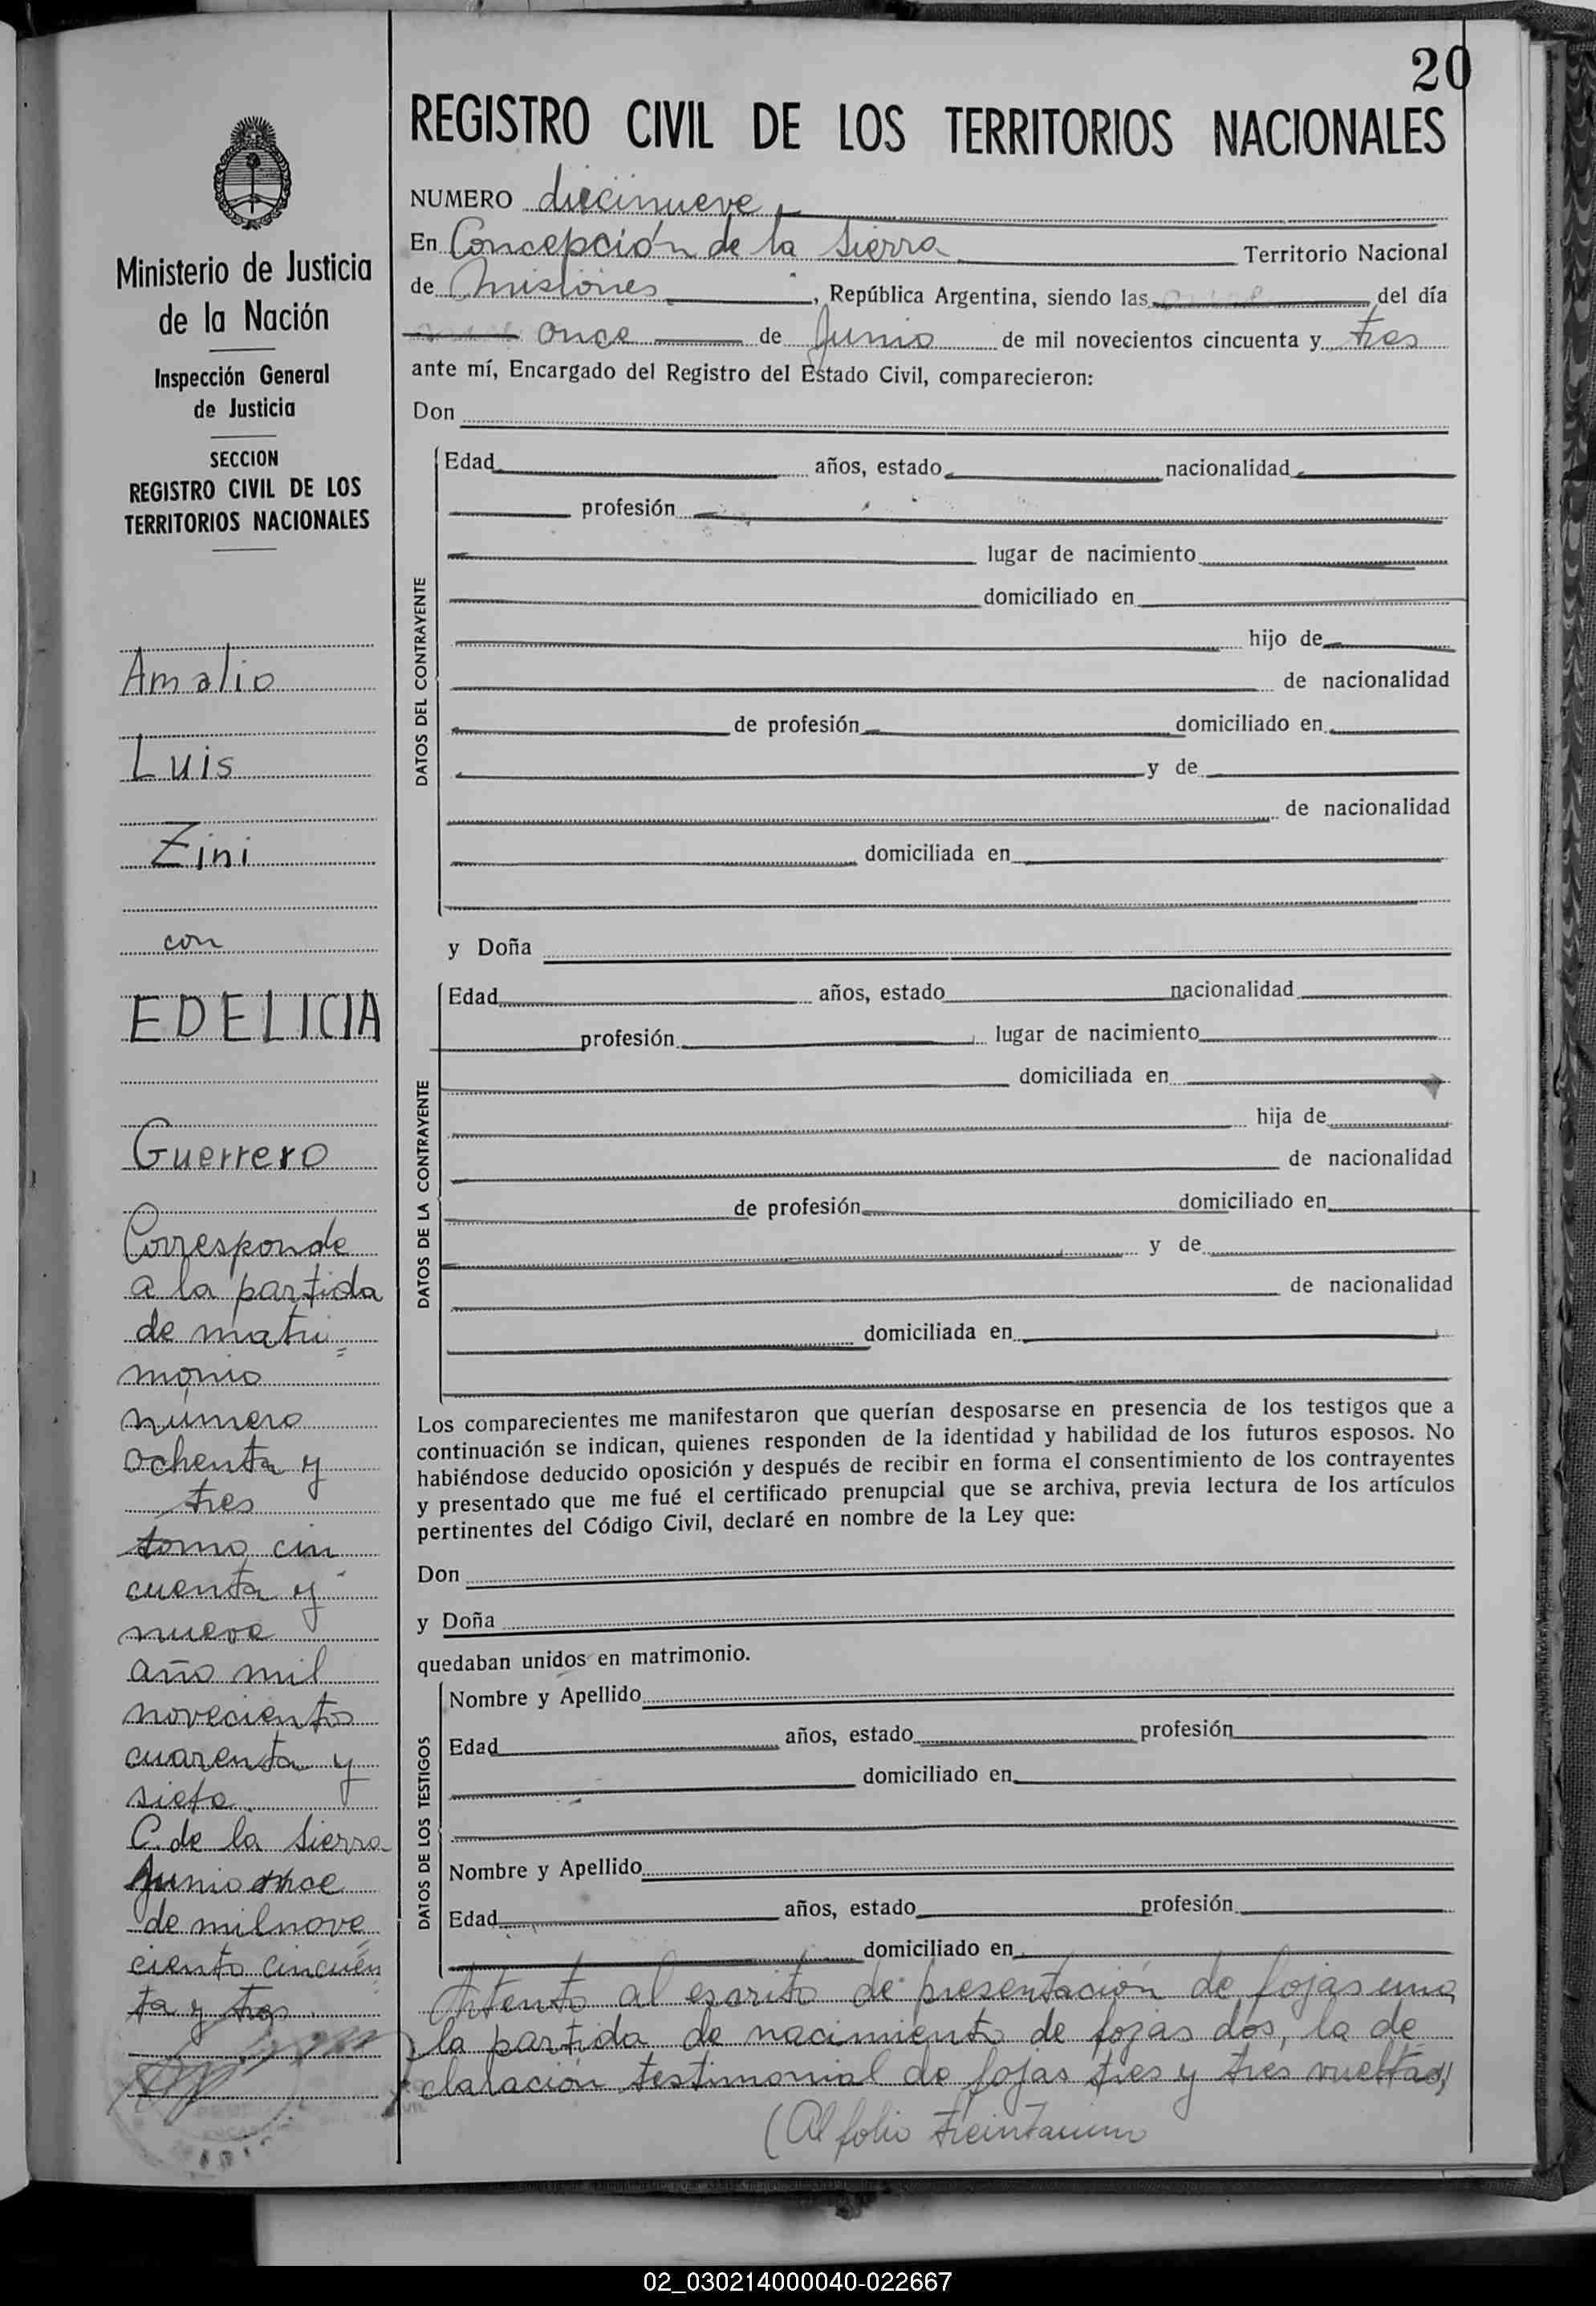 20
REGISTRO CIVIL DE LOS TERRITORIOS NACIONALES
NUMERO diecinueve
En Concepción de la Sierra Territorio Nacional
de Misiones, República Argentina, siendo las del día
once de Junio de mil novecientos cincuenta y tres
ante mí, Encargado del Registro del Estado Civil, comparecieron:
Don
DATOS DEL CONTRAYENTE
Edad años, estado nacionalidad
profesión
lugar de nacimiento
domiciliado en
hijo de
de nacionalidad
de profesión domiciliado en
y de
de nacionalidad
domiciliada en
y Doña
DATOS DE LA CONTRAYENTE
Edad años, estado nacionalidad
profesión lugar de nacimiento
domiciliada en
hija de
de nacionalidad
de profesión domiciliado en
y de
de nacionalidad
domiciliada en
Los comparecientes me manifestaron que querían desposarse en presencia de los testigos que a
continuación se indican, quienes responden de la identidad y habilidad de los futuros esposos. No
habiéndose deducido oposición y después de recibir en forma el consentimiento de los contrayentes
y presentado que me fué el certificado prenupcial que se archiva, previa lectura de los artículos
pertinentes del Código Civil, declaré en nombre de la Ley que:
Don
y Doña
quedaban unidos en matrimonio.
DATOS DE LOS TESTIGOS
Nombre y Apellido
Edad años, estado profesión
domiciliado en
Nombre y Apellido
Edad años, estado profesión
domiciliado en
Atento al escrito de presentación de fojas una
la partida de nacimiento de fojas dos, la de
claración testimonial de fojas tres y tres vueltas,
(Al folio treintaiuno
Ministerio de Justicia
de la Nación
Inspección General
de Justicia
SECCION
REGISTRO CIVIL DE LOS
TERRITORIOS NACIONALES
Amalio
Luis
Zini
con
EDELICIA
Guerrero
Corresponde
a la partida
de matri=
monio
número
ochenta y
tres
tomo cin
cuenta y
nueve
año mil
novecientos
cuarenta y
siete.
C. de la Sierra
Junio once
de milnove
ciento cincuen
ta y tres.
02_030214000040-022667